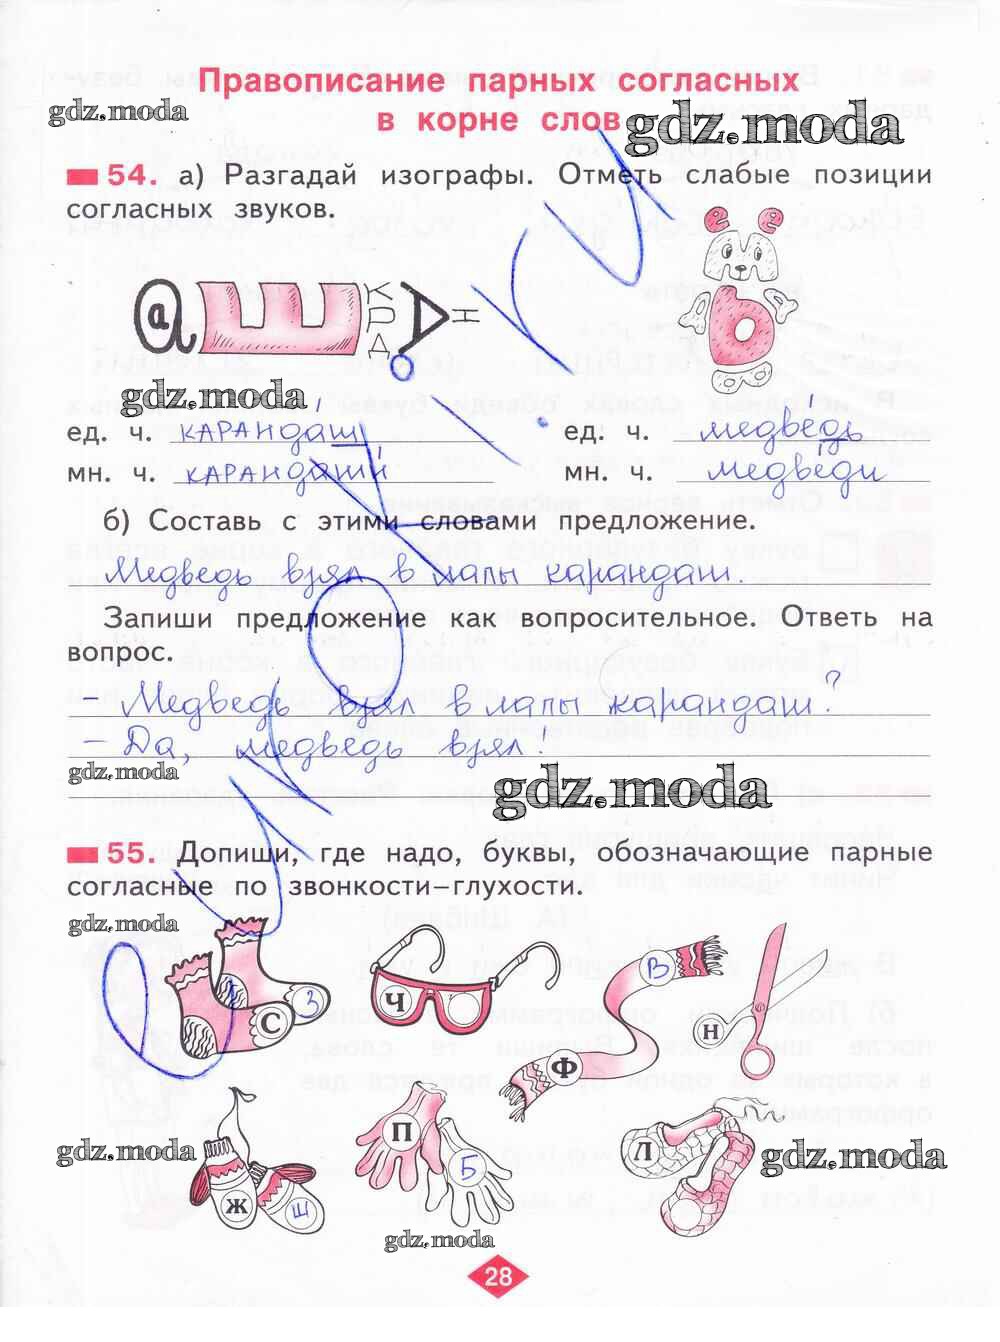 Правописание парных согласных
в корне слов
gdz.moda
gdz.moda
54. а) Разгадай изографы. Отметь слабые позиции
согласных звуков.
gdz.moda
ед. ч. карандаш
ед. ч. медведь
мн. ч. карандаши
мн. ч. медведи
б) Составь с этими словами предложение.
Медведь взял в лапы карандаш.
Запиши предложение как вопросительное. Ответь на
вопрос.
Медведь взял в лапы карандаш?
– Да, медведь взял.
gdz.moda
gdz.moda
55. Допиши, где надо, буквы, обозначающие парные
согласные по звонкости–глухости.
gdz.moda
С З Ч Ф В Н
Ж Ш П Б Л
gdz.moda
gdz.moda
gdz.moda
28